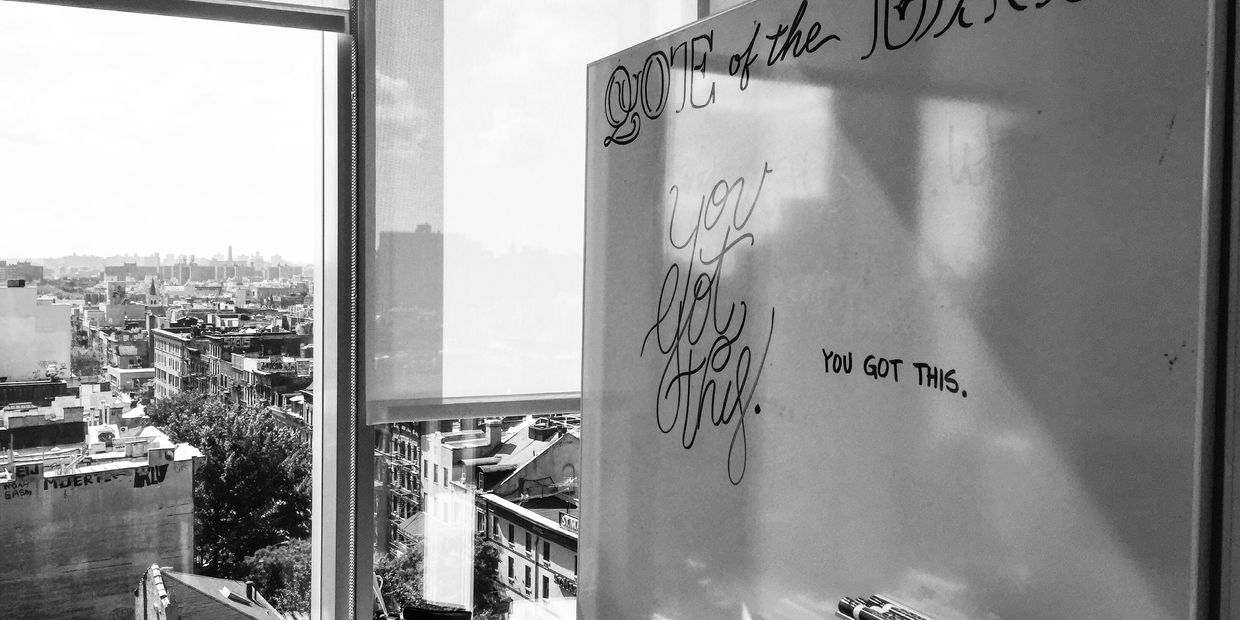 QOTE of the
You
Got
this.
YOU GOT THIS.
MUERTE